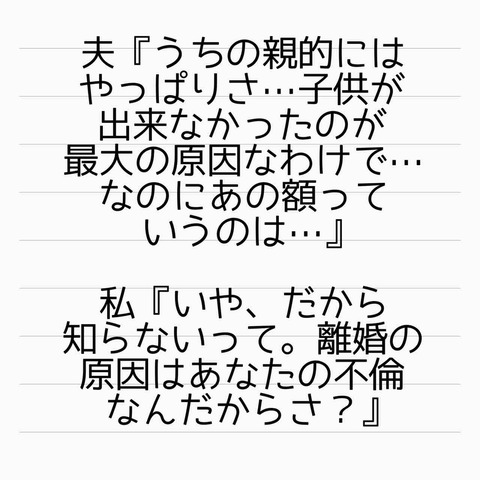 夫『うちの親的には
やっぱりさ…子供が
出来なかったのが
最大の原因なわけで…
なのにあの額って
いうのは…』
私『いや、だから
知らないって。離婚の
原因はあなたの不倫
なんだからさ？』